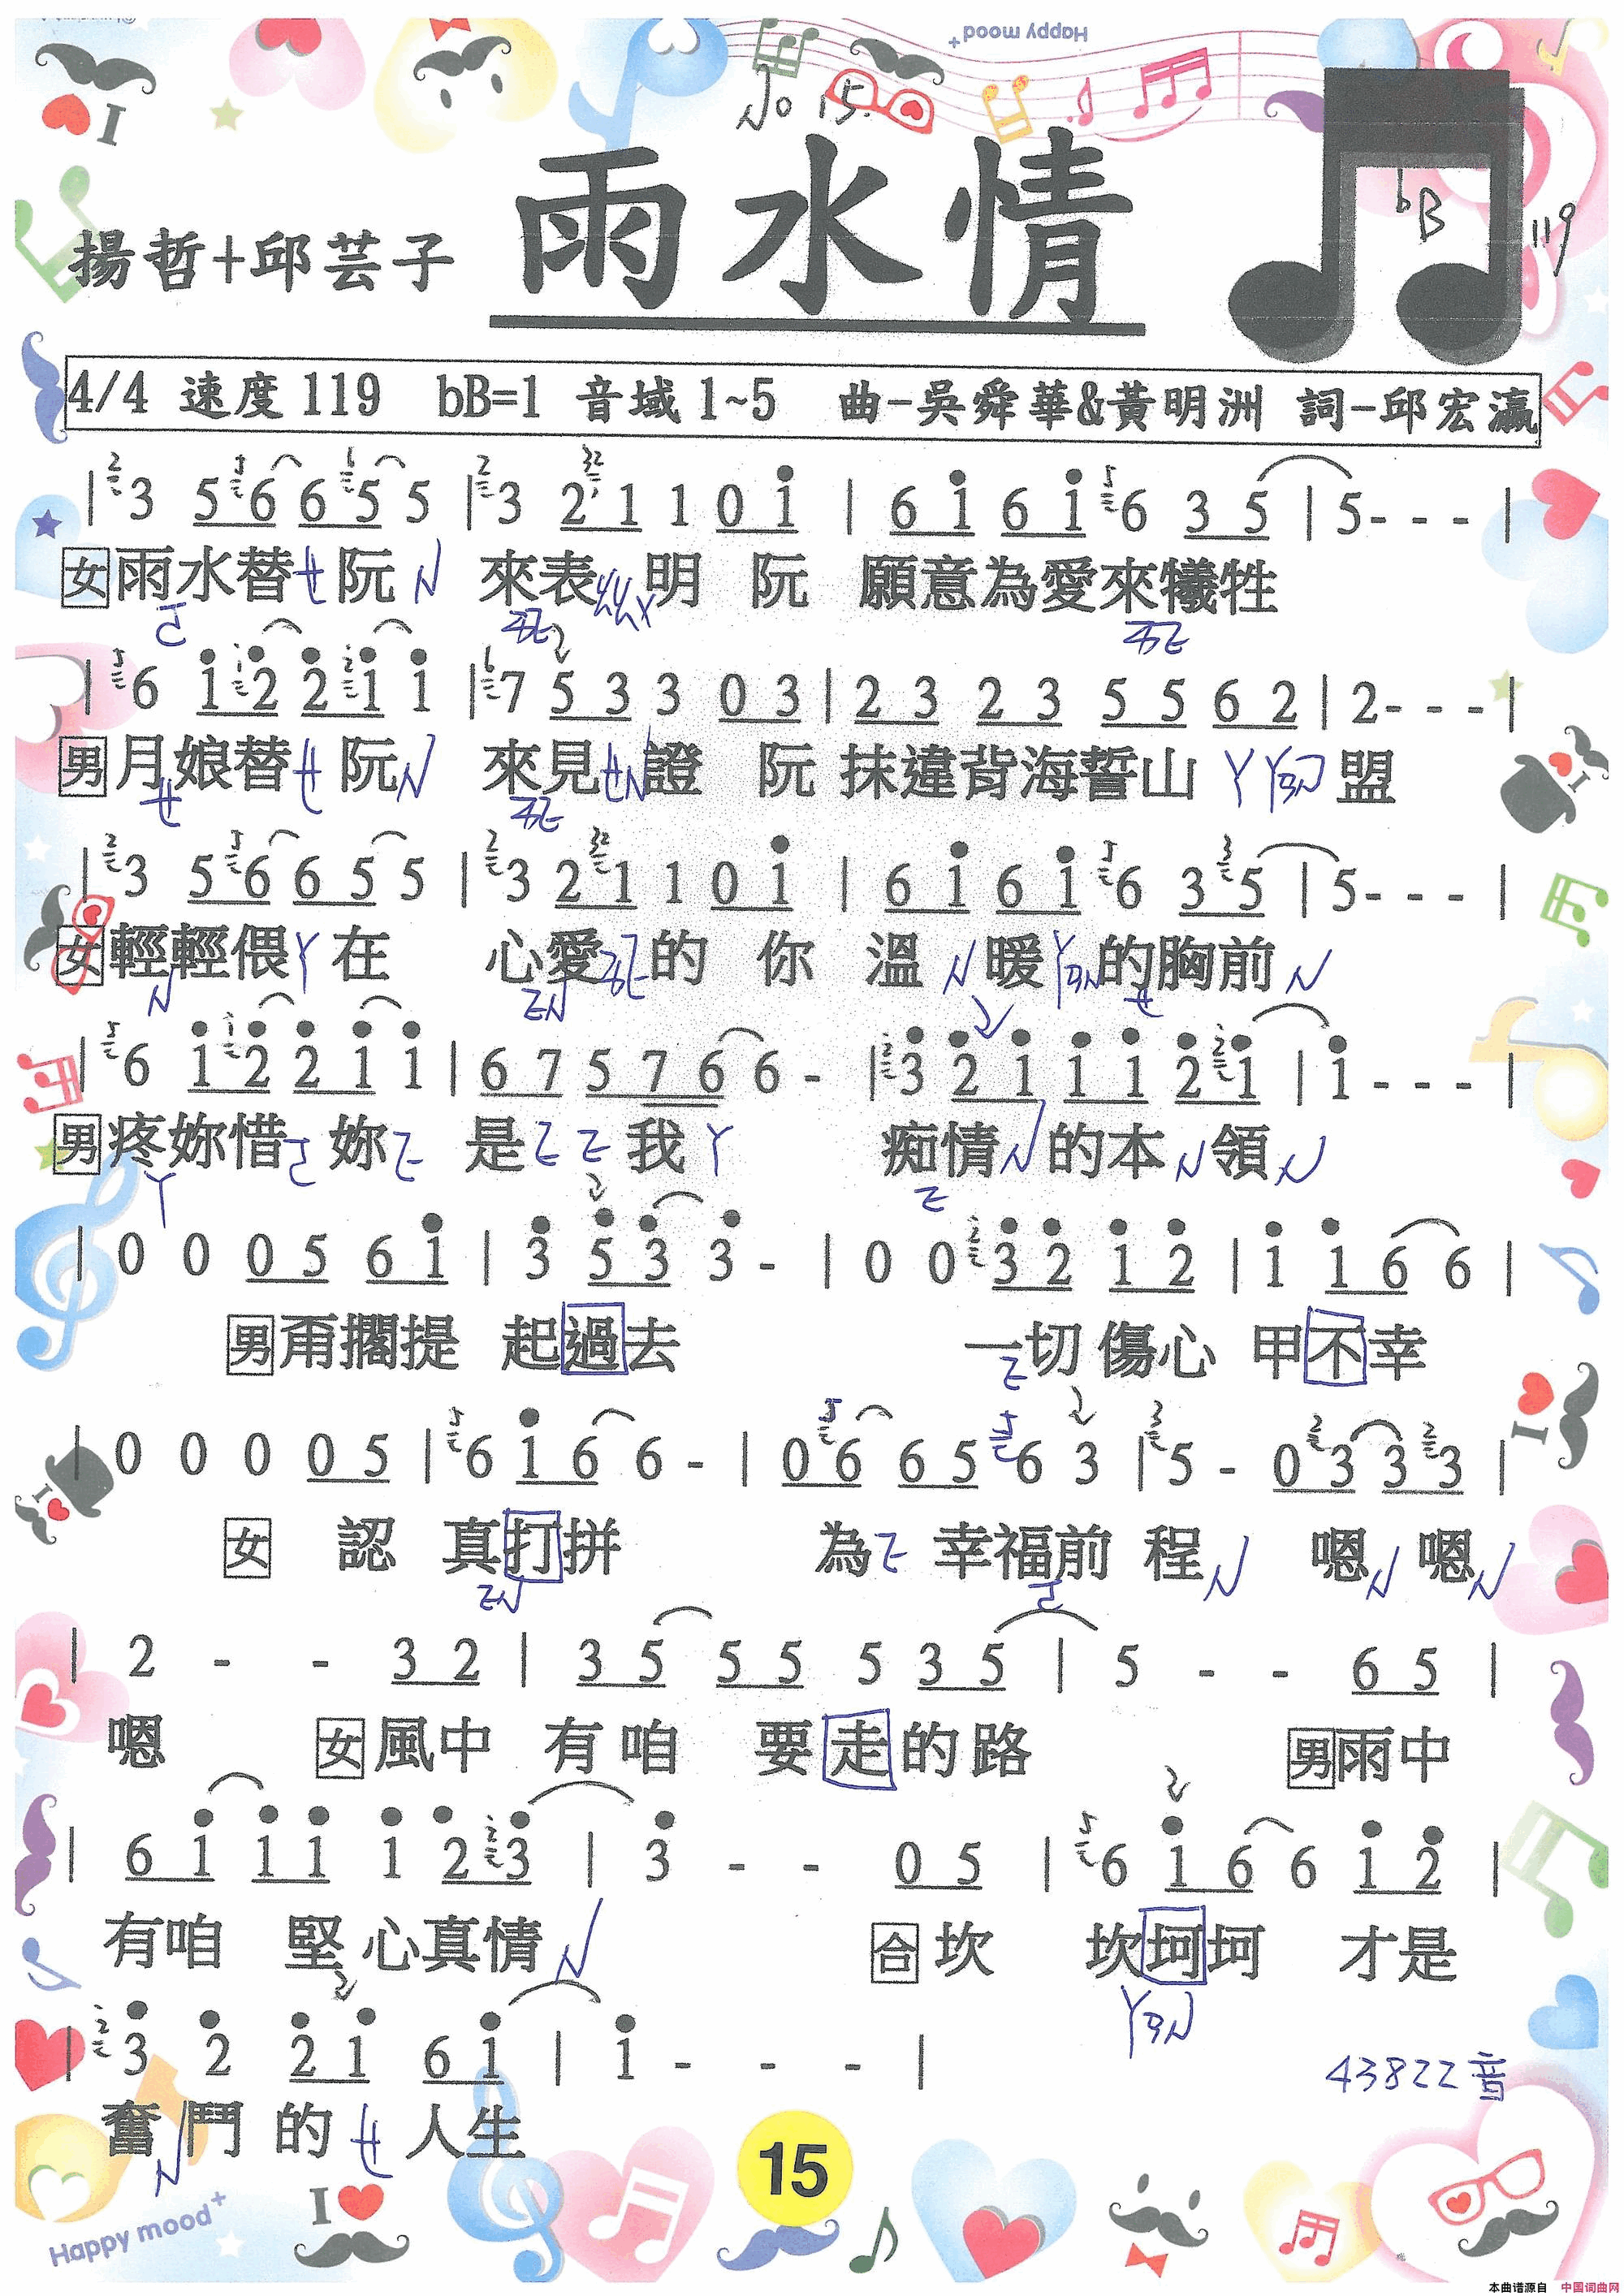 Happy mood+
No 15.
雨水情
揚哲+邱芸子
bB 119
4/4 速度 119 bB=1 音域 1~5 曲-吳舜華&黃明洲 詞-邱宏瀛
| 3 5 6 6 5 5 | 3 2 1 1 0 i | 6 i 6 i 6 3 5 | 5 - - - |
女 雨水替 阮 來表 明 阮 願意為愛來犧牲
| 6 i 2 2 i i | 7 5 3 3 0 3 | 2 3 2 3 5 5 6 2 | 2 - - - |
男 月娘替 阮 來見 證 阮 抹違背海誓山 盟
| 3 5 6 6 5 5 | 3 2 1 1 0 i | 6 i 6 i 6 3 5 | 5 - - - |
女 輕輕偎 在 心愛 的 你 溫 暖 的胸前
| 6 i 2 2 i i | 6 7 5 7 6 6 - | 3 2 i i i 2 i | i - - - |
男 疼妳惜 妳 是 我 痴情 的本 領
| 0 0 0 5 6 i | 3 5 3 3 - | 0 0 3 2 i 2 | i i 6 6 |
男 甭擱提 起過去 一切 傷心 甲不幸
| 0 0 0 0 5 | 6 i 6 6 - | 0 6 6 5 6 3 | 5 - 0 3 3 3 |
女 認 真打拼 為 幸福前 程 嗯 嗯
| 2 - - 3 2 | 3 5 5 5 5 3 5 | 5 - - 6 5 |
嗯 女 風中 有 咱 要 走 的 路 男 雨中
| 6 i i i i 2 3 | 3 - - 0 5 | 6 i 6 6 i 2 |
有咱 堅 心真情 合 坎 坎坷坷 才是
| 3 2 2 i 6 i | i - - - |
43822音
奮 鬥 的 人生
15
I
Happy mood+
本曲谱源自 中国词曲网